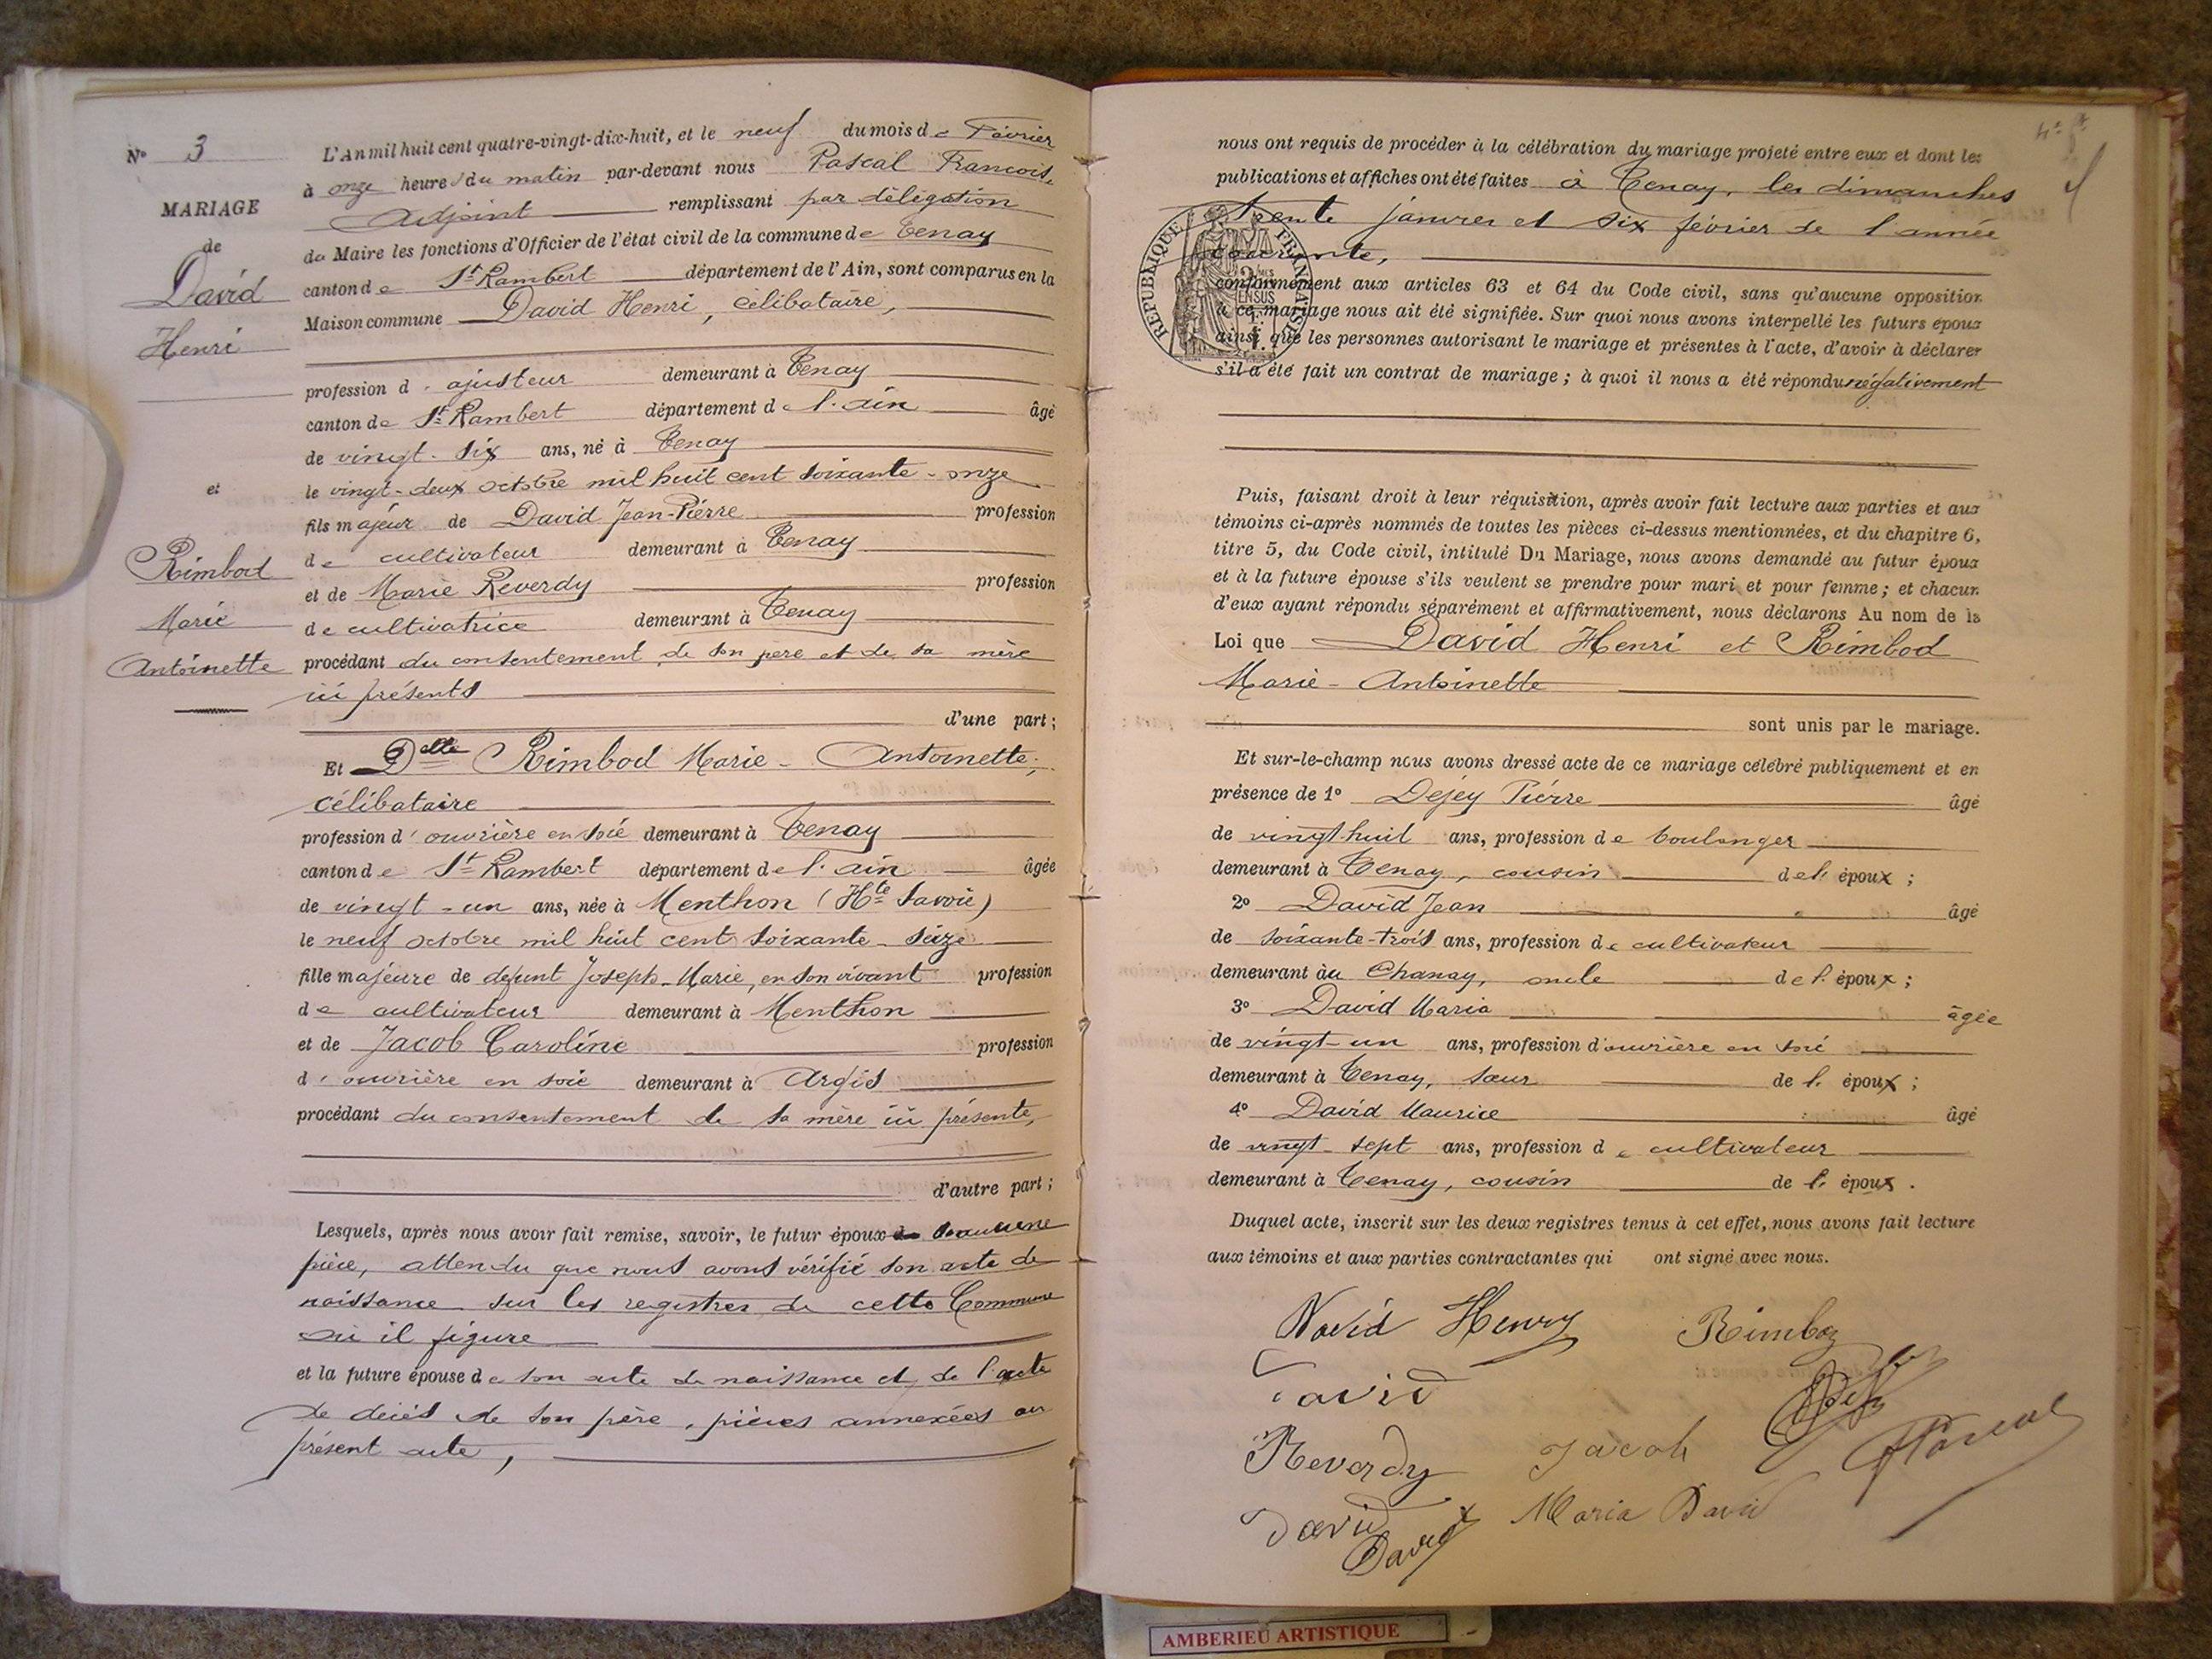 N° 3
MARIAGE
de
David
Henri
et
Rimbod
Marie
Antoinette
L'An mil huit cent quatre-vingt-dix-huit, et le neuf du mois de Février
à onze heures du matin par-devant nous Pascal François,
Adjoint remplissant par délégation
du Maire les fonctions d'Officier de l'état civil de la commune de Tenay
canton de St Rambert département de l'Ain, sont comparus en la
Maison commune David Henri, célibataire,
profession d'ajusteur demeurant à Tenay
canton de St Rambert département de l'ain âgé
de vingt-six ans, né à Tenay
le vingt-deux octobre mil huit cent soixante-onze
fils majeur de David Jean-Pierre profession
de cultivateur demeurant à Tenay
et de Marie Reverdy profession
de cultivatrice demeurant à Tenay
procédant du consentement de son père et de sa mère
ici présents
d'une part;
Et Delle Rimbod Marie-Antoinette,
célibataire
profession d'ouvrière en soie demeurant à Tenay
canton de St Rambert département de l'ain âgée
de vingt-un ans, née à Menthon (Hte Savoie)
le neuf octobre mil huit cent soixante-seize
fille majeure de défunt Joseph-Marie, en son vivant profession
de cultivateur demeurant à Menthon
et de Jacob Caroline profession
d'ouvrière en soie demeurant à Argis
procédant du consentement de sa mère ici présente,
d'autre part;
Lesquels, après nous avoir fait remise, savoir, le futur époux d'aucune
pièce, attendu que nous avons vérifié son acte de
naissance sur les registres de cette Commune
où il figure
et la future épouse de son acte de naissance et de l'acte
de décès de son père, pièces annexées au
présent acte,
nous ont requis de procéder à la célébration du mariage projeté entre eux et dont les
publications et affiches ont été faites à Tenay, les dimanches
trente janvier et six février de l'année
courante,
REPUBLIQUE FRANÇAISE
conformément aux articles 63 et 64 du Code civil, sans qu'aucune opposition
à ce mariage nous ait été signifiée. Sur quoi nous avons interpellé les futurs époux
ainsi que les personnes autorisant le mariage et présentes à l'acte, d'avoir à déclarer
s'il a été fait un contrat de mariage; à quoi il nous a été répondu négativement
Puis, faisant droit à leur réquisition, après avoir fait lecture aux parties et aux
témoins ci-après nommés de toutes les pièces ci-dessus mentionnées, et du chapitre 6,
titre 5, du Code civil, intitulé Du Mariage, nous avons demandé au futur époux
et à la future épouse s'ils veulent se prendre pour mari et pour femme; et chacun
d'eux ayant répondu séparément et affirmativement, nous déclarons Au nom de la
Loi que David Henri et Rimbod
Marie-Antoinette
sont unis par le mariage.
Et sur-le-champ nous avons dressé acte de ce mariage célébré publiquement et en
présence de 1° Dejey Pierre âgé
de vingt-huit ans, profession de boulanger
demeurant à Tenay, cousin de l'époux;
2° David Jean âgé
de soixante-trois ans, profession de cultivateur
demeurant au Chanay, oncle de l'époux;
3° David Maria âgée
de vingt-un ans, profession d'ouvrière en soie
demeurant à Tenay, sœur de l'époux;
4° David Maurice âgé
de vingt-sept ans, profession de cultivateur
demeurant à Tenay, cousin de l'époux.
Duquel acte, inscrit sur les deux registres tenus à cet effet, nous avons fait lecture
aux témoins et aux parties contractantes qui ont signé avec nous.
David Henry Rimboz
David
Reverdy Jacob FPascal
David Maria David
David
AMBERIEU ARTISTIQUE